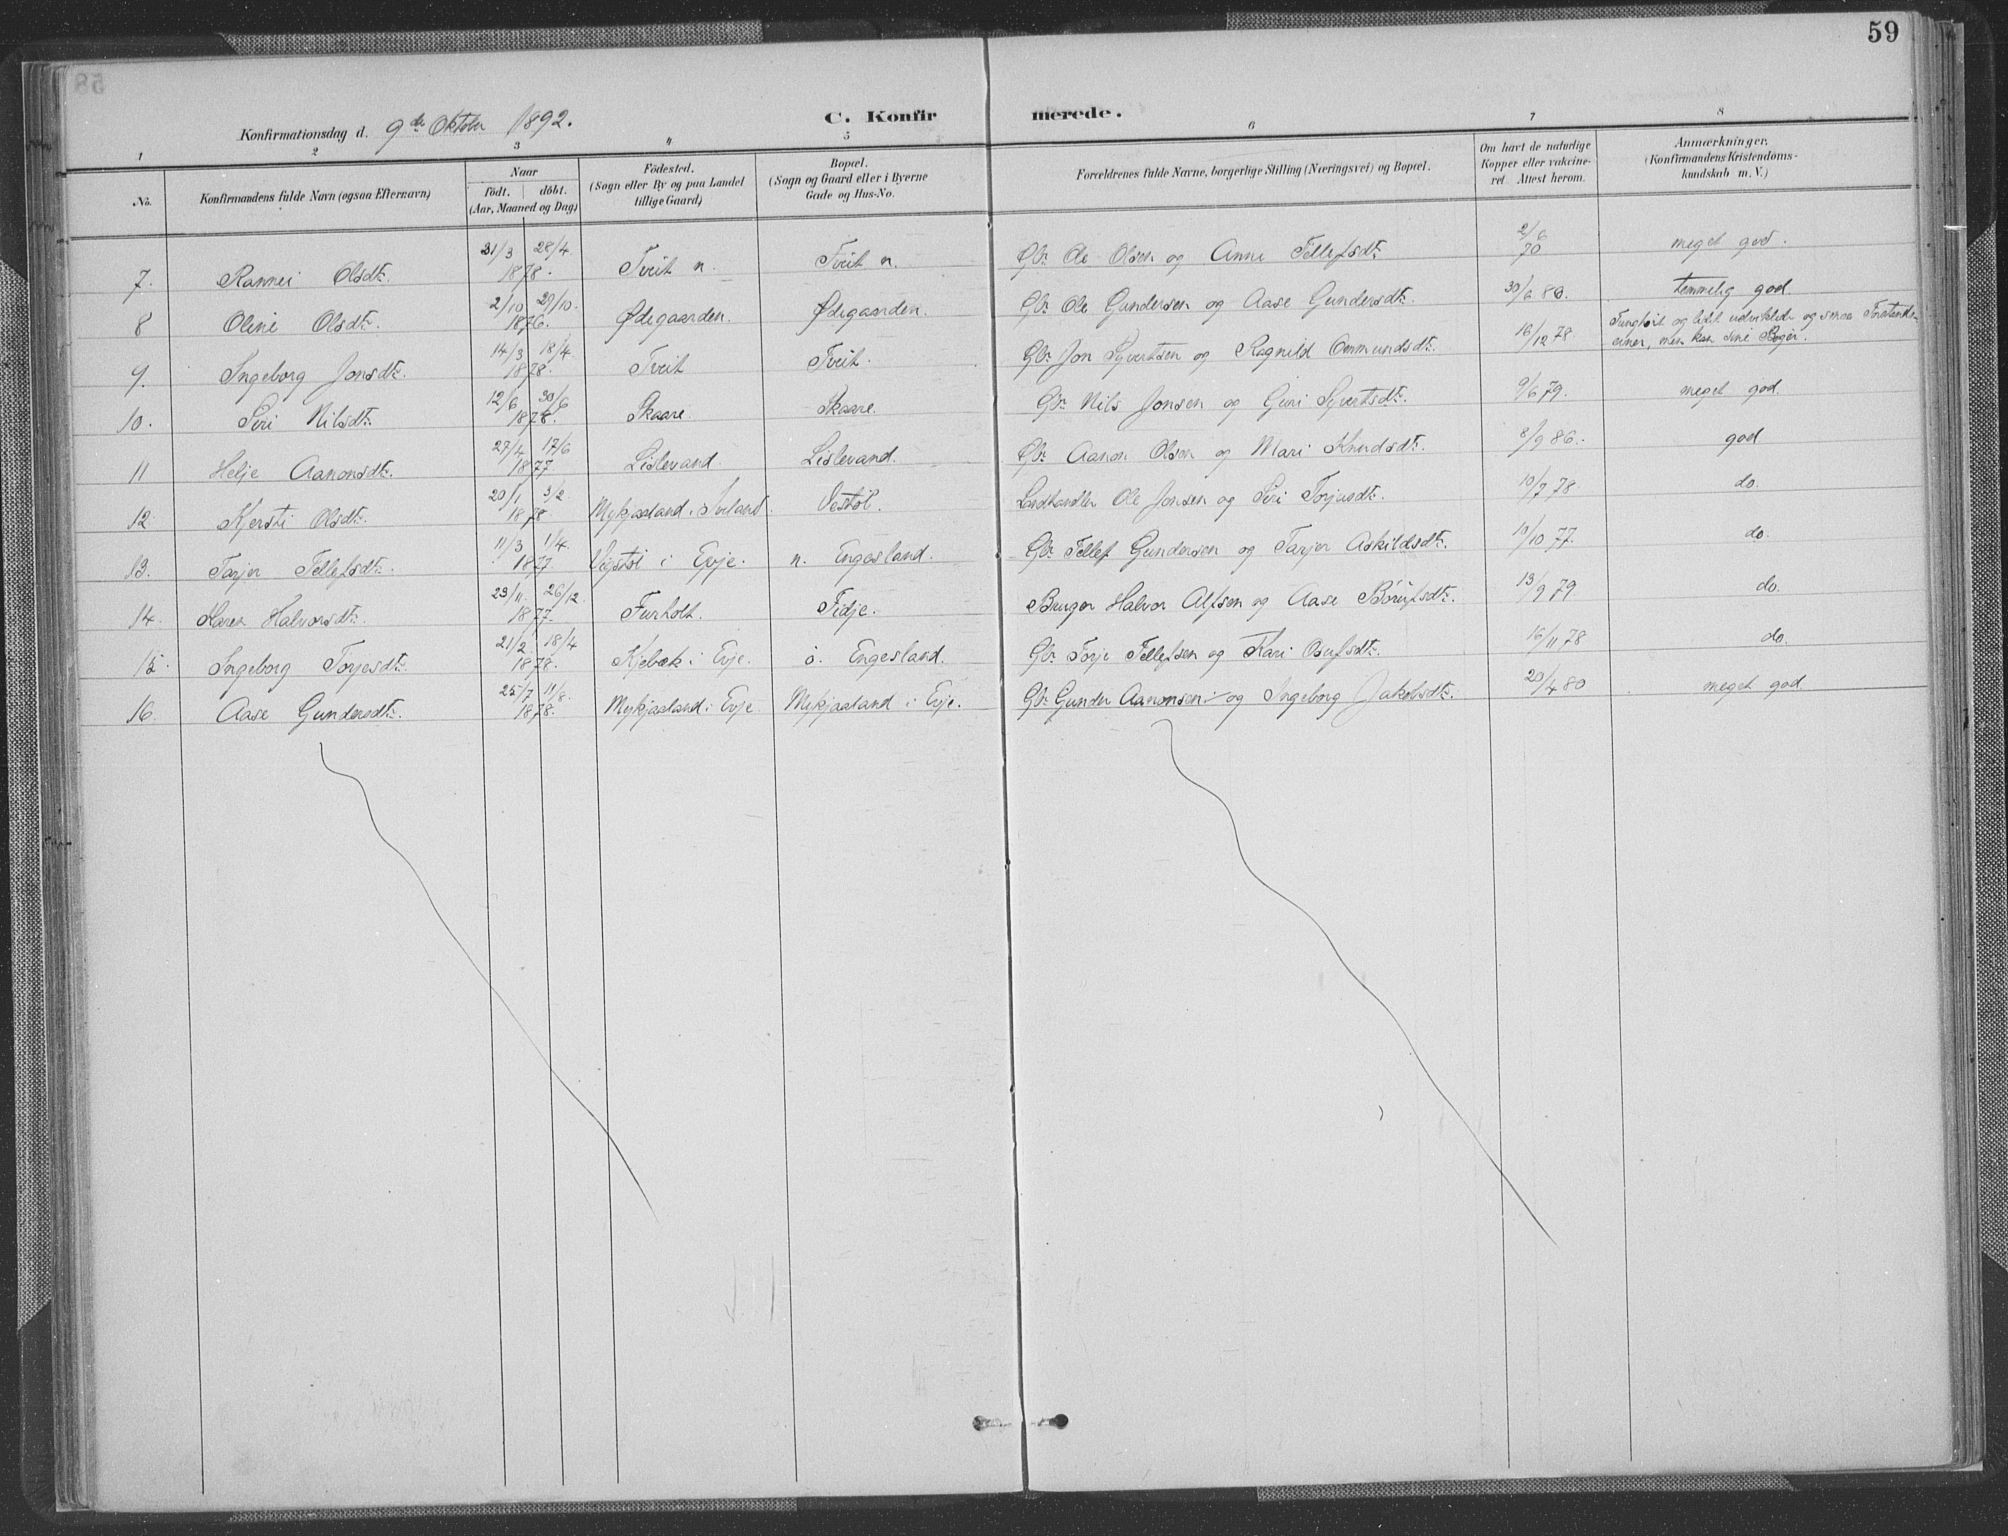 59
Konfirmationsdag d. 9de Oktober 1892.
C. Konfirmerede.
1 2 3 4 5 6 7 8
No.
Konfirmandens fulde Navn (ogsaa Efternavn)
Naar
födt. döbt.
(Aar, Maaned og Dag)
Födested.
(Sogn eller By og paa Landet
tillige Gaard)
Bopæl.
(Sogn og Gaard eller i Byerne
Gade og Hus-No.
Forældrenes fulde Navne, borgerlige Stilling (Næringsvei) og Bopæl.
Om havt de naturlige
Kopper eller vakcine-
ret. Attest herom.
Anmærkninger.
(Konfirmandens Kristendoms-
kundskab m. V.)
7. Rannei Olsdtr. 31/3 28/4 1878. Tveit n. Tveit n. Gbr. Ole Olsen og Anne Tellefsdtr. 2/6 70 meget god.
8 Oline Olsdtr. 2/10 29/10 1876. Ødegaarden. Ødegaarden. Gbr. Ole Gundersen og Aase Gundersdtr. 30/6 80. temmelig god
9. Ingeborg Jonsdtr. 14/3 18/4 1878. Tveit Tveit. Gbr. Jon Syvertsen og Ragnild Ommundsdtr. 16/12 78. Tunghørt og lidet udviklede og smaa Forstands-
evner, men kan sine Bøger.
10. Siri Nilsdtr. 12/6 30/6 1878. Skaare Skaare. Gbr. Nils Jonsen og Guri Syvertsdtr. 9/6 79. meget god
11 Helje Aanonsdtr. 27/4 17/6 1877 Lislevand. Lislevand. Gbr. Aanon Olsen og Mari Knudsdtr. 8/9 86. god
12 Kjersti Olsdtr. 20/1 3/2 1878. Mykjaaland i Iveland. Vestøl. Landhandler Ole Jonsen og Siri Torjusdtr. 10/7 78 do.
13. Tarjer Tellefsdtr. 11/3 1/4. 1877. Vegstøl i Evje. n. Engesland. Gbr. Tellef Gundersen og Tarjer Askildsdtr. 10/10 77. do.
14. Karen Halvorsdtr. 23/11. 26/12. 1877. Furholt. Fidje. Bruger Halvor Alfsen og Aase Børufsdtr. 13/9 79. do.
15. Ingeborg Torjesdtr. 21/2. 18/4 1878. Kjebæk i Evje. ö. Engesland. Gbr. Torje Tellefsen og Kari Osufsdtr. 16/11 78 do.
16. Aase Gundersdtr. 25/7 11/8. 1878. Mykjaaland i Evje Mykjaaland i Evje. Gbr. Gunder Aanonsen og Ingeborg Jakobsdtr. 20/4 80 meget god